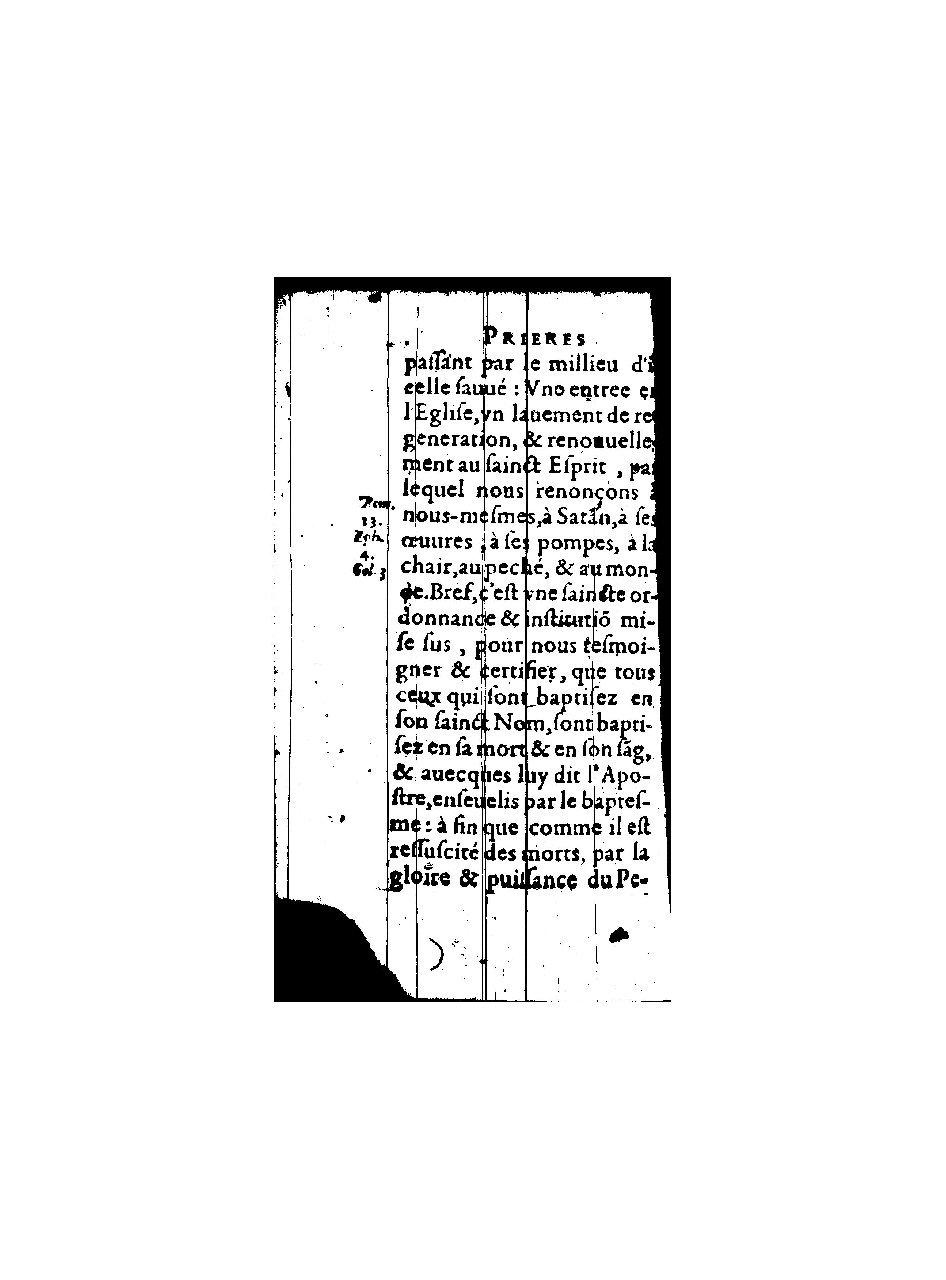 PRIERES
paſſant par le millieu d'i
celle ſauué : Vne entree en
l'Egliſe, vn lauement de re
generation, & renouuelle
ment au ſainct Eſprit , par
lequel nous renonçons à
nous-meſmes, à Satã̃n, à ſes
œuures , à ſes pompes, à la
chair, au peché, & au mon-
de. Bref, c'eſt vne ſaincte or-
donnance & inſtitutiõ mi-
ſe ſus , pour nous teſmoi-
gner & certifier, que tous
ceux qui ſont baptiſez en
ſon ſainct Nom, ſont bapti-
ſez en ſa mort & en ſon ſãg,
& auecques luy dit l'Apo-
ſtre, enſeuelis par le bapteſ-
me : à fin que comme il eſt
reſſuſcité des morts, par la
gloire & puiſſance du Pe-
Rom.
13.
Eph.
4.
Col. 3